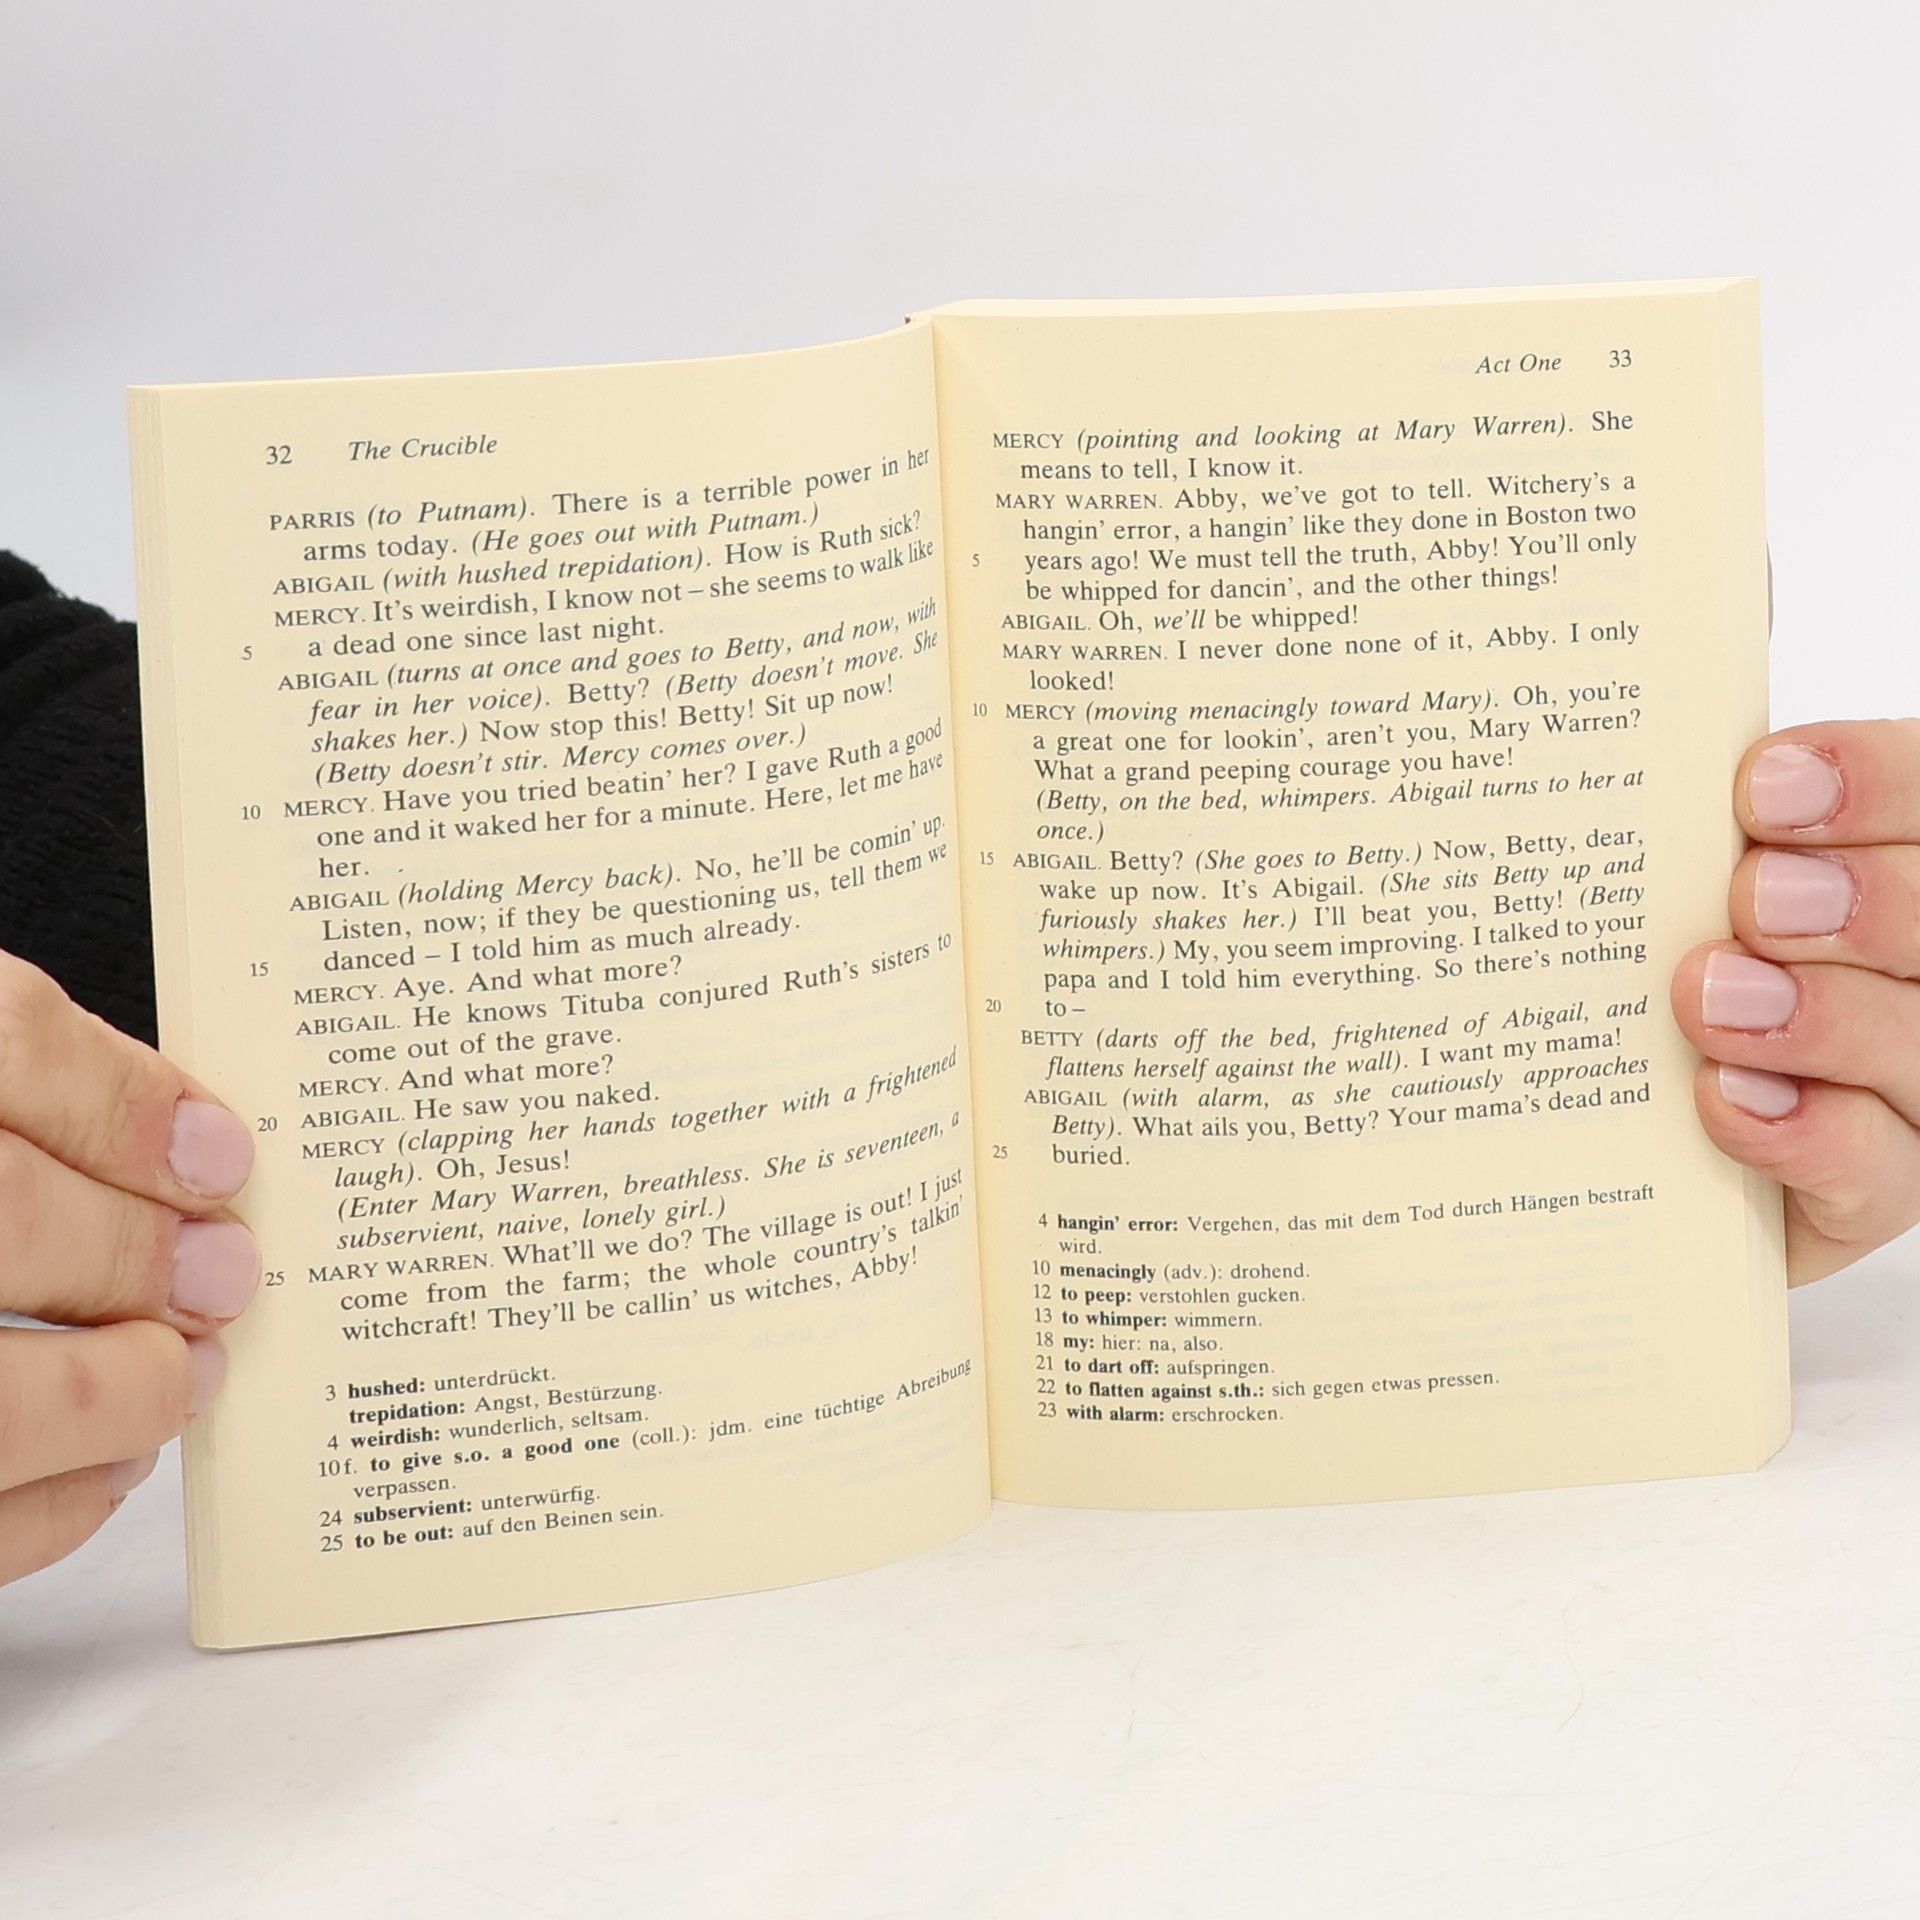 32 The Crucible
PARRIS (to Putnam). There is a terrible power in her
arms today. (He goes out with Putnam.)
ABIGAIL (with hushed trepidation). How is Ruth sick?
MERCY. It's weirdish, I know not – she seems to walk like
5 a dead one since last night.
ABIGAIL (turns at once and goes to Betty, and now, with
fear in her voice). Betty? (Betty doesn't move. She
shakes her.) Now stop this! Betty! Sit up now!
(Betty doesn't stir. Mercy comes over.)
10 MERCY. Have you tried beatin' her? I gave Ruth a good
one and it waked her for a minute. Here, let me have
her.
ABIGAIL (holding Mercy back). No, he'll be comin' up.
Listen, now; if they be questioning us, tell them we
15 danced – I told him as much already.
MERCY. Aye. And what more?
ABIGAIL. He knows Tituba conjured Ruth's sisters to
come out of the grave.
MERCY. And what more?
20 ABIGAIL. He saw you naked.
MERCY (clapping her hands together with a frightened
laugh). Oh, Jesus!
(Enter Mary Warren, breathless. She is seventeen, a
subservient, naive, lonely girl.)
25 MARY WARREN. What'll we do? The village is out! I just
come from the farm; the whole country's talkin'
witchcraft! They'll be callin' us witches, Abby!
3 hushed: unterdrückt.
trepidation: Angst, Bestürzung.
4 weirdish: wunderlich, seltsam.
10f. to give s.o. a good one (coll.): jdm. eine tüchtige Abreibung
verpassen.
24 subservient: unterwürfig.
25 to be out: auf den Beinen sein.
Act One 33
MERCY (pointing and looking at Mary Warren). She
means to tell, I know it.
MARY WARREN. Abby, we've got to tell. Witchery's a
hangin' error, a hangin' like they done in Boston two
5 years ago! We must tell the truth, Abby! You'll only
be whipped for dancin', and the other things!
ABIGAIL. Oh, we'll be whipped!
MARY WARREN. I never done none of it, Abby. I only
looked!
10 MERCY (moving menacingly toward Mary). Oh, you're
a great one for lookin', aren't you, Mary Warren?
What a grand peeping courage you have!
(Betty, on the bed, whimpers. Abigail turns to her at
once.)
15 ABIGAIL. Betty? (She goes to Betty.) Now, Betty, dear,
wake up now. It's Abigail. (She sits Betty up and
furiously shakes her.) I'll beat you, Betty! (Betty
whimpers.) My, you seem improving. I talked to your
papa and I told him everything. So there's nothing
20 to –
BETTY (darts off the bed, frightened of Abigail, and
flattens herself against the wall). I want my mama!
ABIGAIL (with alarm, as she cautiously approaches
Betty). What ails you, Betty? Your mama's dead and
25 buried.
4 hangin' error: Vergehen, das mit dem Tod durch Hängen bestraft
wird.
10 menacingly (adv.): drohend.
12 to peep: verstohlen gucken.
13 to whimper: wimmern.
18 my: hier: na, also.
21 to dart off: aufspringen.
22 to flatten against s.th.: sich gegen etwas pressen.
23 with alarm: erschrocken.